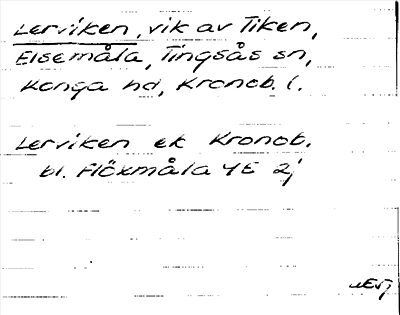 Lerviken, vik av Tiken,
Elsemåla, Tingsås sn,
Konga hd, Kronob. l.
Lerviken ek Kronob.
bl. Flöxmåla 4E 2j